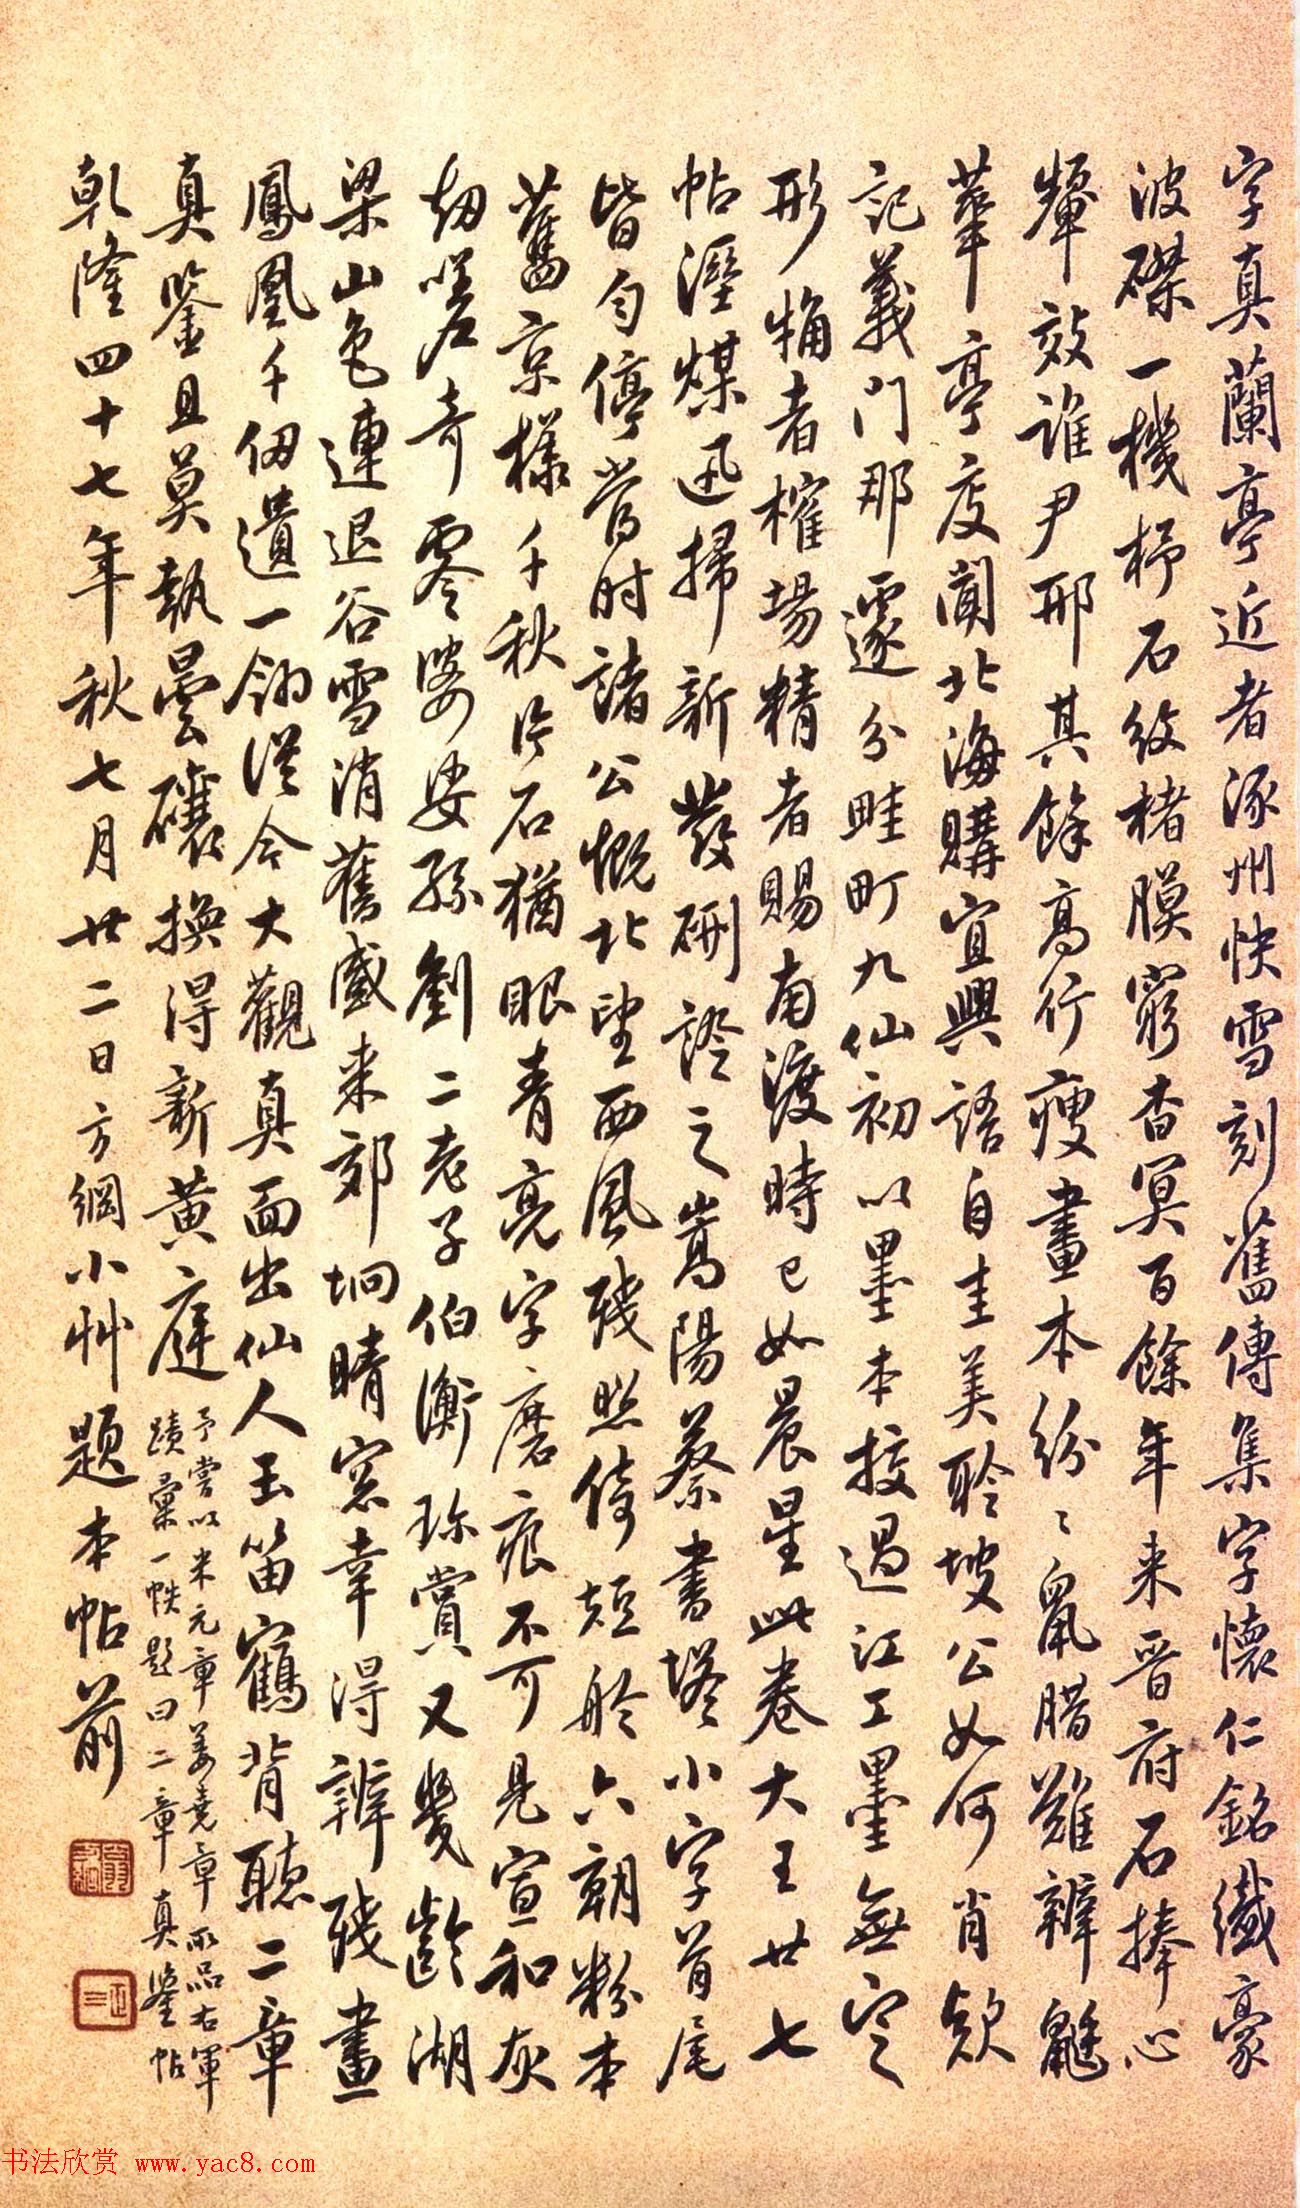 字真蘭亭近者涿州快雪刻舊傳集字懷仁銘纖豪
波磔一機杼石紋楮膜窮杳冥百餘年来晋府石捧心
顰效誰尹邢其餘高行瘦畫本紛〻鼠腊難辨鼮
華亭度閣北海購宜興語自圭美聆坡公如何肖欵
記義門那邃分畦町九仙初以墨本挍過江工墨無定
形桷者榷場精者賜南渡時已如晨星此卷大王廿七
帖溼煤迅掃新發硎證之嵩陽蔡書塔小字首尾
皆勻停當时諸公慨北望西風殘照倚短舲六朝粉本
舊京樣千秋片石猶眼青亮字磨痕不可見宣和灰
劫嗟奇零婆娑孫劉二老子伯衡珎賞又幾齡湖
梁山色連退谷雪消舊感来郊坰晴窓幸得辨殘畫
鳳凰千仞遺一翎從今大觀真面出仙人玉笛鶴背聽二章
真鑒且莫執曇礲換得新黃庭
予嘗以米元章姜堯章所品右軍
蹟彙一帙題曰二章真鑒帖
乹隆四十七年秋七月廿二日方綱小艸題本帖前
书法欣赏 www.yac8.com